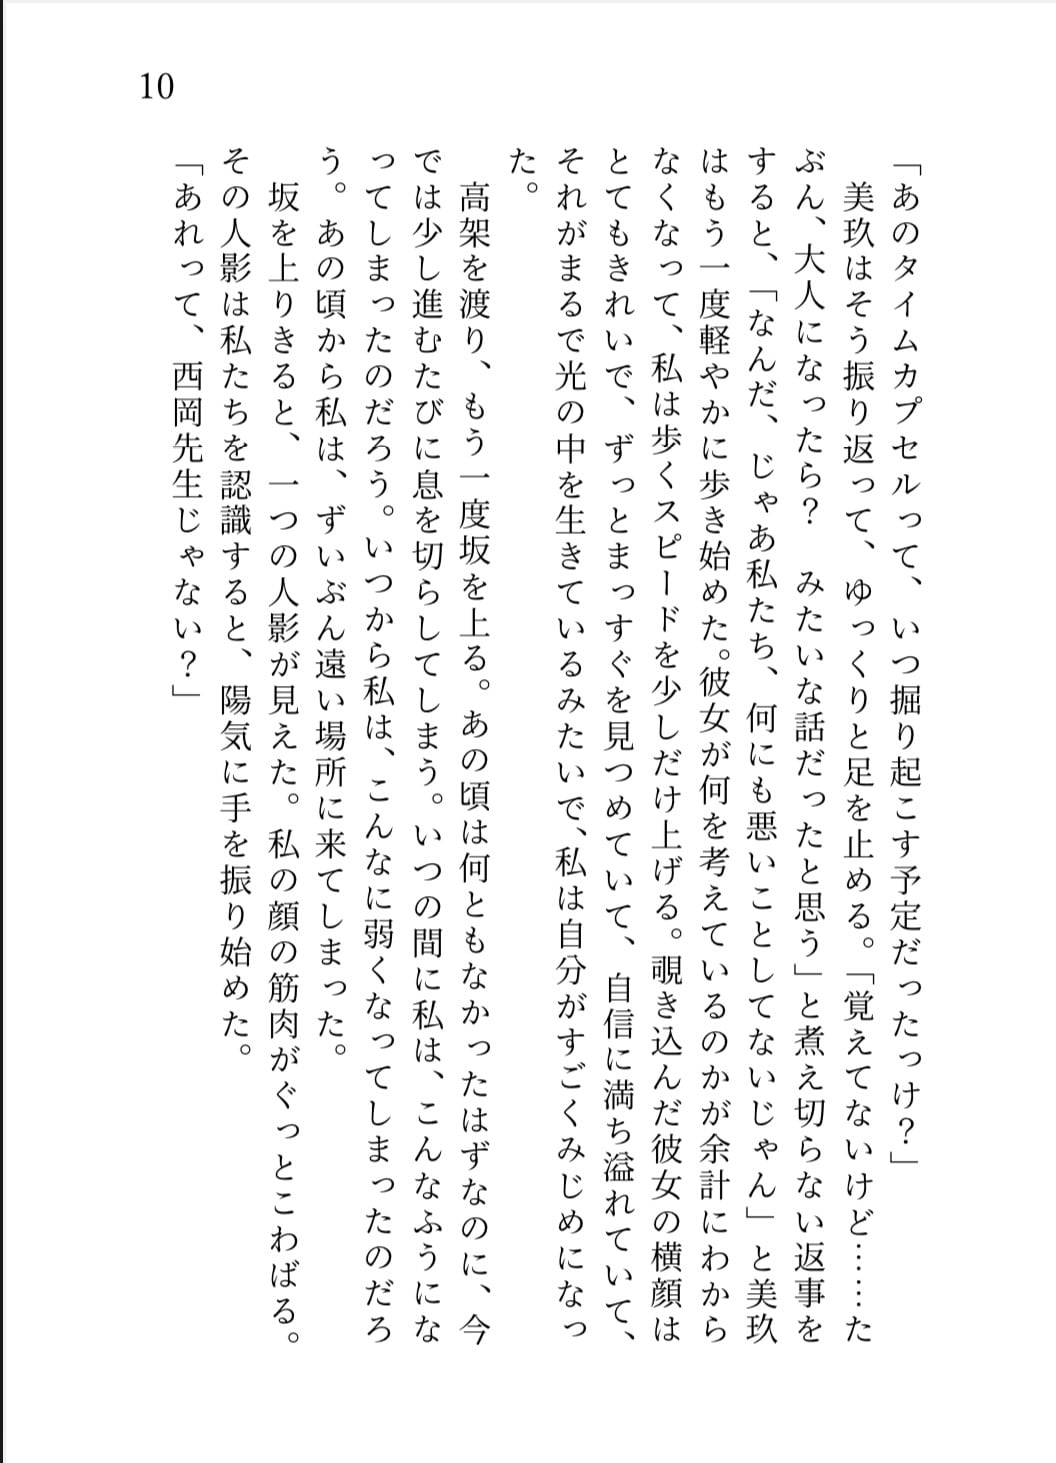 10
「あのタイムカプセルって、いつ掘り起こす予定だったっけ？」
　美玖はそう振り返って、ゆっくりと足を止める。「覚えてないけど……た
ぶん、大人になったら？　みたいな話だったと思う」と煮え切らない返事を
すると、「なんだ、じゃあ私たち、何にも悪いことしてないじゃん」と美玖
はもう一度軽やかに歩き始めた。彼女が何を考えているのかが余計にわから
なくなって、私は歩くスピードを少しだけ上げる。覗き込んだ彼女の横顔は
とてもきれいで、ずっとまっすぐを見つめていて、自信に満ち溢れていて、
それがまるで光の中を生きているみたいで、私は自分がすごくみじめになっ
た。
　高架を渡り、もう一度坂を上る。あの頃は何ともなかったはずなのに、今
では少し進むたびに息を切らしてしまう。いつの間に私は、こんなふうにな
ってしまったのだろう。いつから私は、こんなに弱くなってしまったのだろ
う。あの頃から私は、ずいぶん遠い場所に来てしまった。
　坂を上りきると、一つの人影が見えた。私の顔の筋肉がぐっとこわばる。
その人影は私たちを認識すると、陽気に手を振り始めた。
「あれって、西岡先生じゃない？」